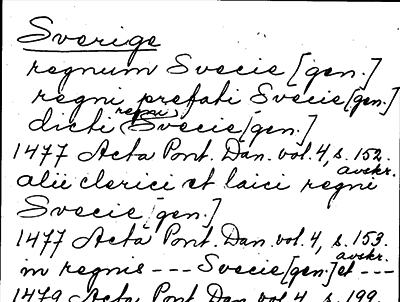 Sverige
regnum Svecie [gen.]
regni prefati Svecie [gen.]
dicti regni Svecie [gen.]
1477 Acta Pont. Dan. vol. 4, s. 152. avskr.
alii clerici et laici regni
Svecie [gen.]
1477 Acta Pont. Dan. vol. 4, s. 153. avskr.
in regnis --- Svecie [gen.] et ---
1479 Acta Pont. Dan. vol. 4, s. 199.